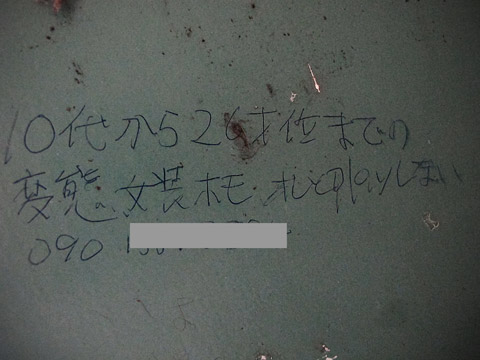 10代から2 才位までの
変態 女装ホモ オレとplayしない
090